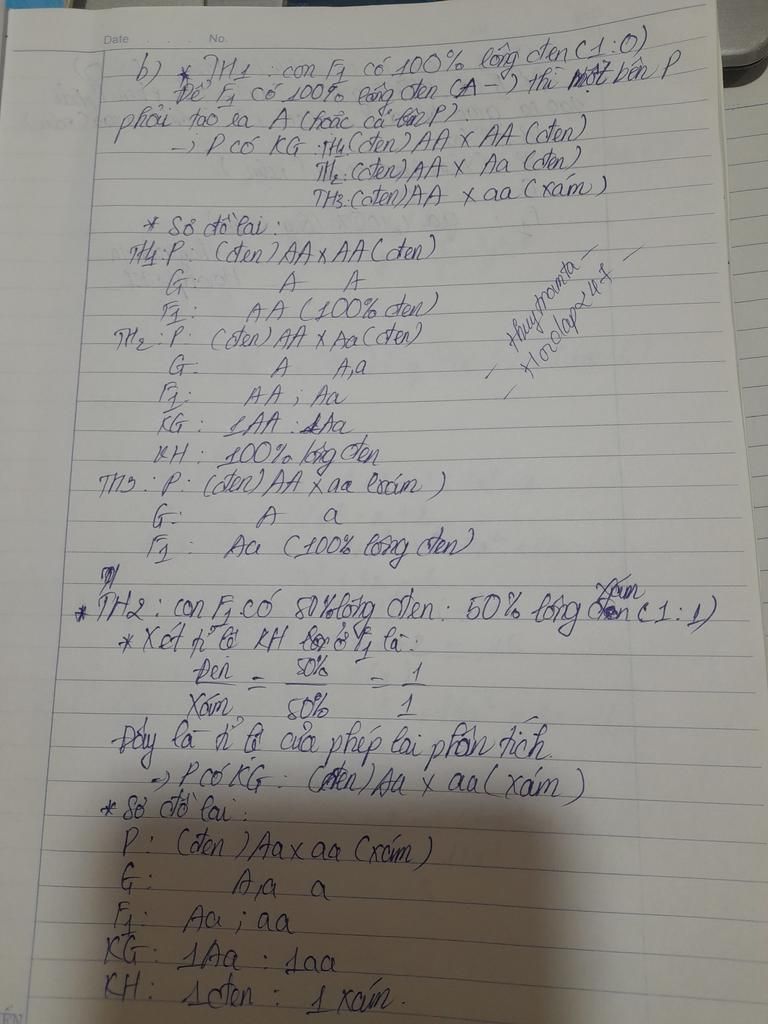 Date No.
b) * TH1 : con F1 có 100% lông đen (1:0)
Để F1 có 100% lông đen (A-) thì một bên P
phải tạo ra A (hoặc cả bên P).
-> P có KG : TH1 (đen) AA x AA (đen)
TH2: (đen) AA x Aa (đen)
TH3: (đen) AA x aa (xám)
* Sơ đồ lai :
TH1: P: (đen) AA x AA (đen)
G: A A
F1: AA (100% đen)
TH2 : P: (đen) AA x Aa (đen)
G: A A,a
F1: AA ; Aa
KG : 1AA : 1Aa
KH : 100% lông đen
TH3 : P: (đen) AA x aa (xám)
G: A a
F1 : Aa (100% lông đen)
- thuytramta -
- Hoidap247 -
* TH2 : con F1 có 50% lông đen : 50% lông xám (1:1)
* Xét tỉ lệ KH ở F1 là :
Đen = 50% = 1
Xám 50% 1
Đây là tỉ lệ của phép lai phân tích.
-> P có KG : (đen) Aa x aa (xám)
* Sơ đồ lai :
P : (đen) Aa x aa (xám)
G: A,a a
F1: Aa ; aa
KG : 1Aa : 1aa
KH : 1 đen : 1 xám.